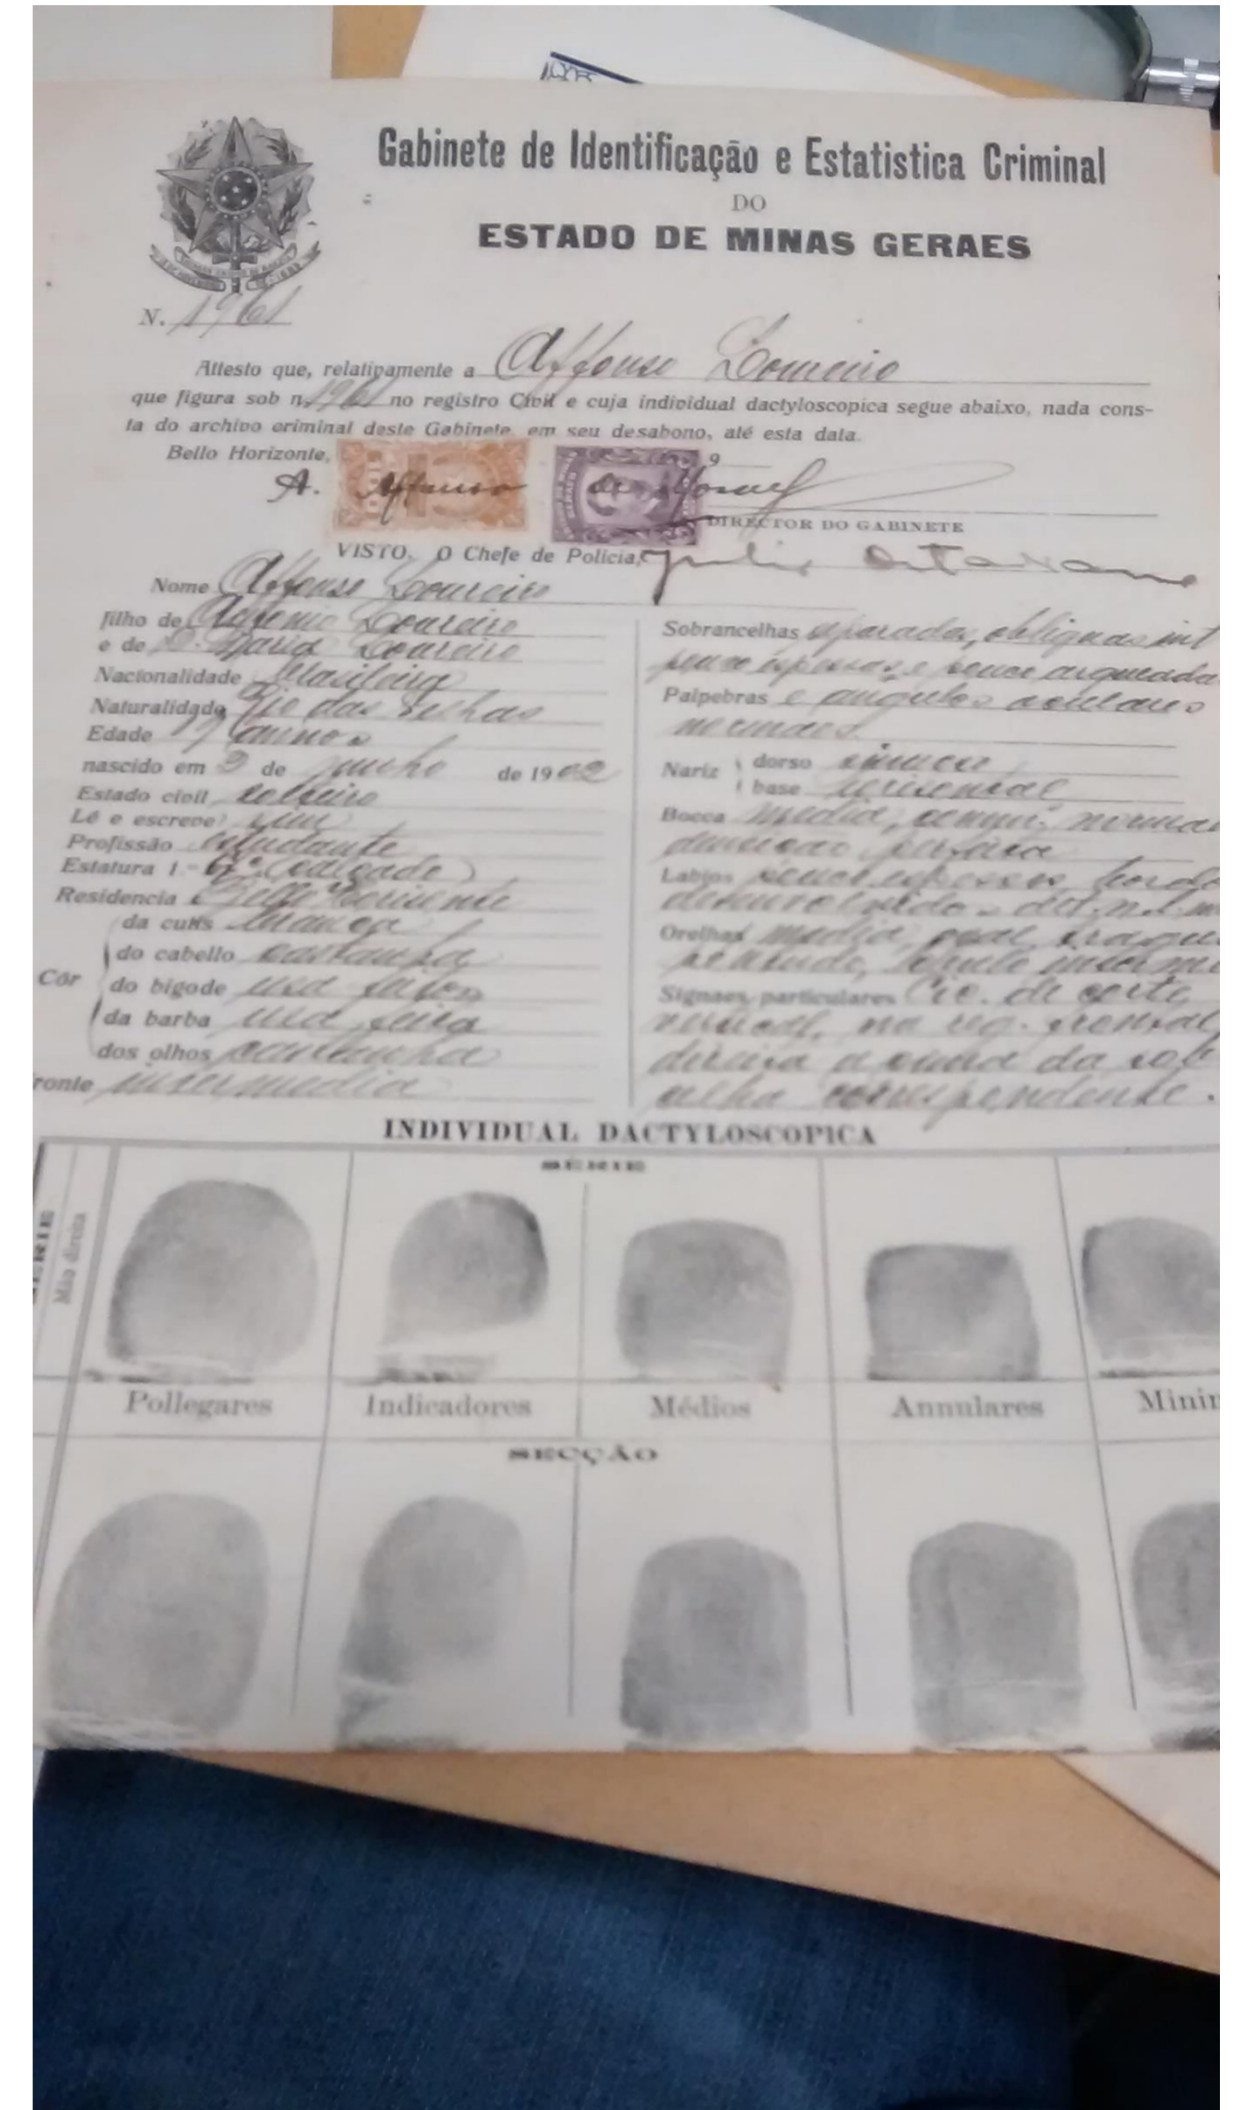 Gabinete de Identificação e Estatistica Criminal
DO
ESTADO DE MINAS GERAES
N. 1961
Attesto que, relativamente a Affonso Loureiro
que figura sob n. 1961 no registro Civil e cuja individual dactyloscopica segue abaixo, nada cons-
ta do archivo criminal deste Gabinete, em seu desabono, até esta data.
Bello Horizonte, 9
A. Affonso de Moraes
DIRECTOR DO GABINETE
VISTO. O Chefe de Policia, Julio Octaviano
Nome Affonso Loureiro
filho de Loureiro
e de D. Maria Loureiro
Nacionalidade Brasileira
Naturalidade Rio das Velhas
Edade 17 annos
nascido em de junho de 1902
Estado civil solteiro
Lê e escreve? sim
Profissão estudante
Estatura 1.- (calçado)
Residencia Bello Horizonte
Côr
da cutis branca
do cabello castanha
do bigode usa
da barba usa feita
dos olhos castanha
ronte intermedia
Sobrancelhas separadas, obliquas int
pouco espessas, e pouco arqueada
Palpebras e angulos oculares
normaes.
Nariz
dorso sinuoso
base horisontal
Bocca media, norma
dentição perfeita
Labios pouco espessos, bordo
Orelhas media, oval, tragus
lobulo interm
Signaes particulares Cic. de corte,
vertical, na reg. frontal
direita acima da sob
celha correspondente.
INDIVIDUAL DACTYLOSCOPICA
SÉRIE
Mão direita
Pollegares Indicadores Médios Annulares Minim
SECÇÃO